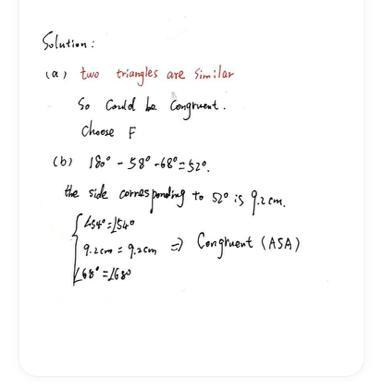 Solution:
(a) two triangles are similar
So Could be Congruent.
Choose F
(b) 180° - 58° - 68° = 52°.
the side corresponding to 52° is 9.2cm.
{ ∠54° = ∠54°
9.2cm = 9.2cm => Congruent (ASA)
∠68° = ∠68°